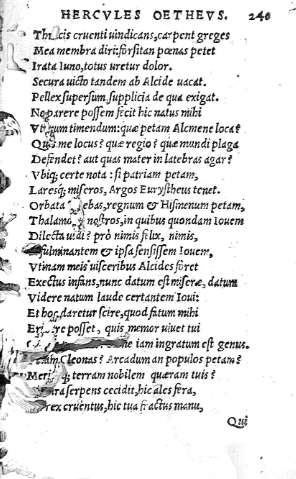 HERCVLES OETHEVS. 240
cis cruenti uindicans, carpent greges
Mea membra diri: forsitan pœnas petet
Irata Iuno, totus uretur dolor.
Secura uicto tandem ab Alcide uacat.
Pellex supersum, supplicia de qua exigat.
Ne parere possem fecit hic natus mihi
timendum: quæ petam Alcmene loca?
me locus? quæ regio? quæ mundi plaga
Defendet? aut quas mater in latebras agar?
Vbiq; certe nota: si patriam petam,
Laresq; miseros, Argos Eurystheus tenet.
Orbata ebas, regnum & Hismenum petam,
Thalamo nostros, in quibus quondam Iouem
Dilecta uidi? prò nimis felix, nimis,
fulminantem & ipsa sensissem Iouem,
Vtinam meis uisceribus Alcides foret
Exectus infans, nunc datum est miseræ, datum
Videre natum laude certantem Ioui:
Et hoc daretur scire, quod fatum mihi
posset, quis memor uiuet tui
ne iam ingratum est genus.
Cleonas? Arcadum an populos petam?
terram nobilem quæram tuis?
serpens cecidit, hic ales fera,
rex cruentus, hic tua fractus manu,
Qui